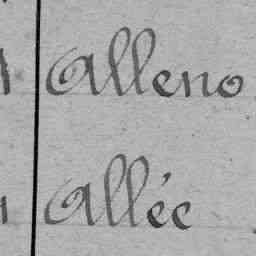 Alleno
Allée